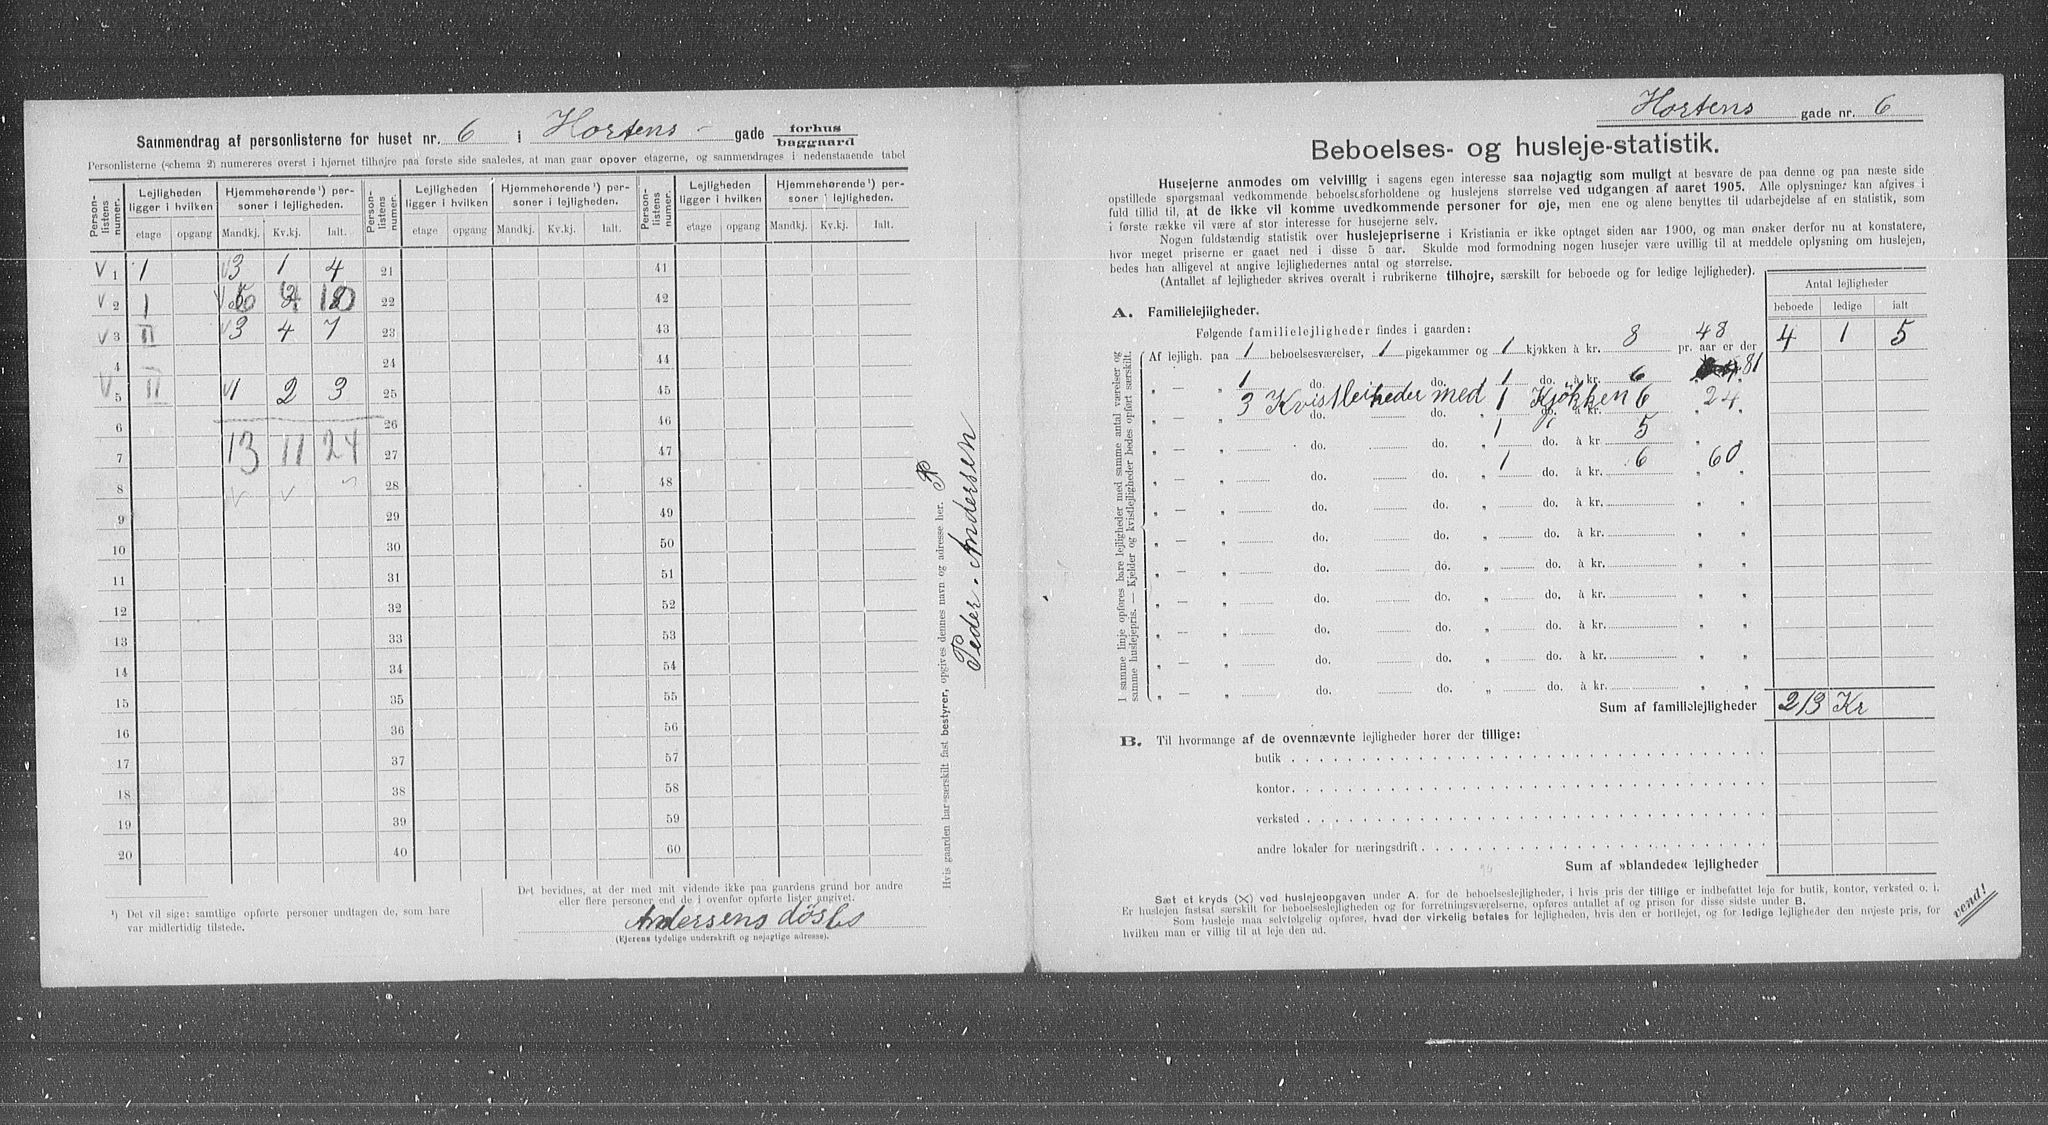 Sammendrag af personlisterne for huset nr. 6 i Hortens - gade forhus baggaard
Personlisterne (schema 2) numereres øverst i hjørnet tilhøjre paa første side saaledes, at man gaar opover etagerne, og sammendrages i nedenstaaende tabel
Person-listens nummer. Lejligheden ligger i hvilken Hjemmehørende ¹) personer i lejligheden. Person-listens nummer. Lejligheden ligger i hvilken Hjemmehørende ¹) personer i lejligheden. Person-listens nummer. Lejligheden ligger i hvilken Hjemmehørende ¹) personer i lejligheden.
etage opgang Mandkj. Kv.kj. Ialt. etage opgang Mandkj. Kv.kj. Ialt. etage opgang Mandkj. Kv.kj. Ialt.
V 1 1 V3 1 4 21 41
V 2 1 10 22 42
V 3 II V3 4 7 23 43
4 24 44
V 5 II V1 2 3 25 45
6 26 46
7 13 11 24 27 47
8 V V 28 48
9 29 49
10 30 50
11 31 51
12 32 52
13 33 53
14 34 54
15 35 55
16 36 56
17 37 57
18 38 58
19 39 59
20 40 60
¹) Det vil sige: samtlige opførte personer undtagen de, som bare var midlertidig tilstede.
Det bevidnes, at der med mit vidende ikke paa gaardens grund bor andre
eller flere personer end de i ovenfor opførte lister angivet.
Andersens
(Ejerens tydelige underskrift og nøjagtige adresse).
Hvis gaarden har særskilt fast bestyrer, opgives dennes navn og adresse her.
Peder. Andersen
Hortens gade nr. 6
Beboelses- og husleje-statistik.
Husejerne anmodes om velvillig i sagens egen interesse saa nøjagtig som muligt at besvare de paa denne og paa næste side
opstillede spørgsmaal vedkommende beboelsesforholdene og huslejens størrelse ved udgangen af aaret 1905. Alle oplysninger kan afgives i
fuld tillid til, at de ikke vil komme uvedkommende personer for øje, men ene og alene benyttes til udarbejdelse af en statistik, som
i første række vil være af stor interesse for husejerne selv.
Nogen fuldstændig statistik over huslejepriserne i Kristiania er ikke optaget siden aar 1900, og man ønsker derfor nu at konstatere,
hvor meget priserne er gaaet ned i disse 5 aar. Skulde mod formodning nogen husejer være uvillig til at meddele oplysning om huslejen,
bedes han alligevel at angive lejlighedernes antal og størrelse.
(Antallet af lejligheder skrives overalt i rubrikerne tilhøjre, særskilt for beboede og for ledige lejligheder).
Antal lejligheder
beboede ledige ialt
A. Familielejligheder.
Følgende familielejligheder findes i gaarden:
I samme linje opføres bare lejligheder med samme antal værelser og samme huslejepris. — Kjelder og kvistlejligheder bedes opført særskilt.
Af lejligh. paa 1 beboelsesværelser, 1 pigekammer og 1 kjøkken à kr. 8 48 pr. aar er der 4 1 5
„ — „ 1 do. do. 1 do. à kr. 6 „ 81
„ — „ 3 do. Kvistleiheder med do. 1 Kjökken do. à kr. 6 „ 24 „
„ — „ do. do. „ 1 do. à kr. 5 „
„ — „ do. do. „ 1 do. à kr. 6 „ 60 „
„ — „ do. do. „ do. à kr. „ „
„ — „ do. do. „ do. à kr. „ „
„ — „ do. do. „ do. à kr. „ „
„ — „ do. do. „ do. à kr. „ „
„ — „ do. do. „ do. à kr. „ „
„ — „ do. do. „ do. à kr. „ „
„ — „ do. do. „ do. à kr. „ „
Sum af familielejligheder 213 Kr
B. Til hvormange af de ovennævnte lejligheder hører der tillige:
butik
kontor.
verksted
andre lokaler for næringsdrift
Sum af »blandede« lejligheder
Sæt et kryds (X) ved huslejeopgaven under A. for de beboelseslejligheder, i hvis pris der tillige er indbefattet leje for butik, kontor, verksted o. l.
Er huslejen fastsat særskilt for beboelseslejligheden og for forretningsværelserne, opføres antallet af og prisen for disse sidste under B.
Som husleje maa selvfølgelig opføres, hvad der virkelig betales for lejligheden, hvis den er bortlejet, og for ledige lejligheder den nøjeste pris, for
hvilken man er villig til at leje den ud.
vend!